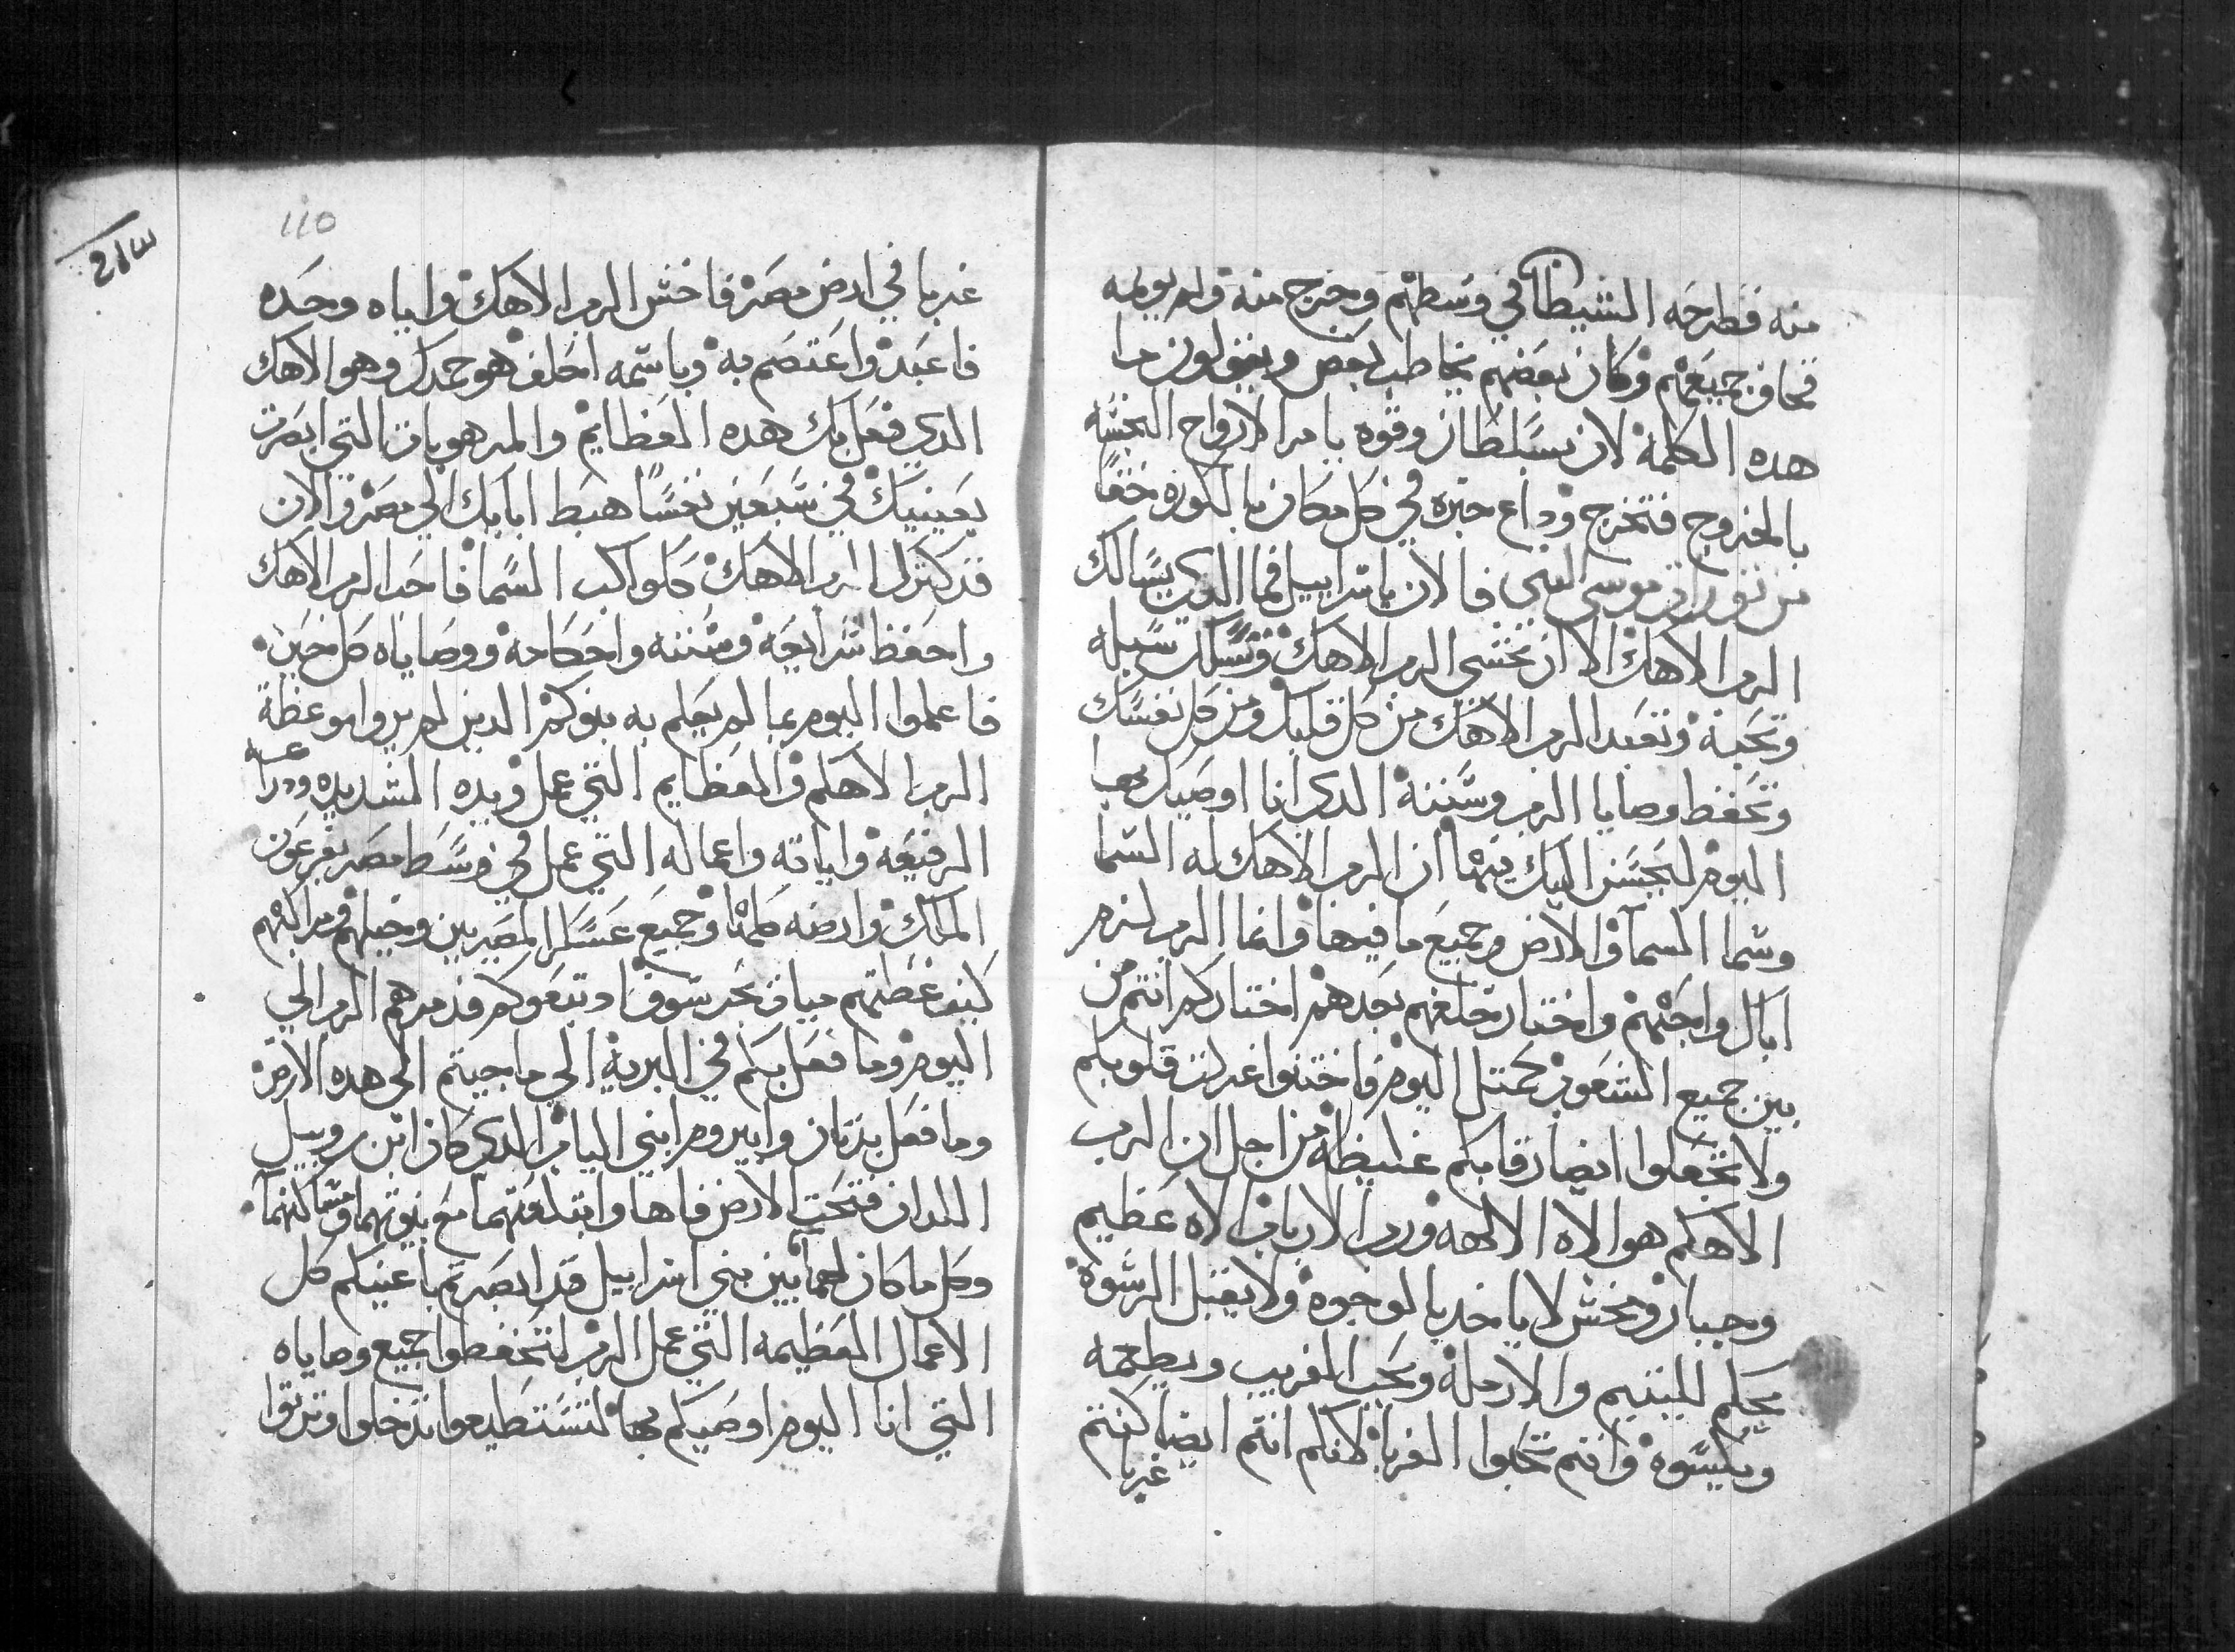 منه فطرحه الشيطان في وسطهم وخرج منه ولم يولمه
فخاف جميعهم وكان بعضهم يخاطب بعض ويقولون ما
هده الكلمة لان بسلطان وقوه يامر الارواح النجسه
بالخروج فتخرج وداع خبره في كل مكان بالكوره حقا
من توراة موسى النبي فالان ياسراييل فما الدي يسالك
الرب الاهك الا ان تخشى الرب الاهك وتسلك سبله
وتحبه وتعبد الرب الاهك من كل قلبك ومن كل نفسك
وتحفظ وصايا الرب وسننه الدي انا اوصيك بها
اليوم ليحسن اليك فيها ان الرب الاهك له السما
وسما السما والارض وجميع ما فيها وانما الرب لزم
اباك واحبهم واختار خلفهم بعدهم اختاركم انتم من
بين جميع الشعوب كمتل اليوم فاختنوا غرلت قلوبكم
ولا تجعلوا ايضا رقابكم غليظه من اجل ان الرب
الاهكم هو الاه الالهه ورب الارباب الاه عظيم
وجبار ومخش لا ياخد بالوجوه ولا يقبل الرشوة
يحكم لليتيم والارملة ويحب الغريب ويطعمه
ويكسوه وانتم تحبوا الغربا لانكم انتم ايضا كنتم
غربا
110
213
غربا في ارض مصر فاخش الرب الاهك واياه وحده
فاعبد واعتصم به وباسمه احلف هو حمدك وهو الاهك
الدي فعل بك هده العظايم والمرهوبات التي ابصرت
بعينيك في سبعين نفسا هبط اباىك الي مصر والان
قد كترك الرب الاهك كلواكب السما فاحب الرب الاهك
واحفظ شرايعه وسننه واحكامه ووصاياه كل حين
فاعلموا اليوم بما لم يعلم به بنوكم الدين لم يروا موعظة
الرب الاهكم والعظايم التي عمل ويده الشديده ودراعه
الرفيعه واياته واعماله التي عمل في وسط مصر بفرعون
الملك وارضه كلها وجميع عسكر المصريين وخيلهم ومراكبهم
كيف غطتهم مياه بحر سوف اد تبعوكم فدمرهم الرب الي
اليوم وما فعل بكم في البرية الي ما جيتم الى هده الارض
وما فعل بدتان وابيروم ابني الياب الدي كان ابن روبيل
اللدان فتحت الارض فاها وابتلعتهما مع بيوتهما ومساكنهما
وكل ما كان لهما بين بني اسراييل قد ابصرتم باعينكم كل
الاعمال العظيمه التي عمل الرب لتحفظوا جميع وصاياه
التي انا اليوم اوصيكم بها لتستطيعوا تدخلوا وترتوا